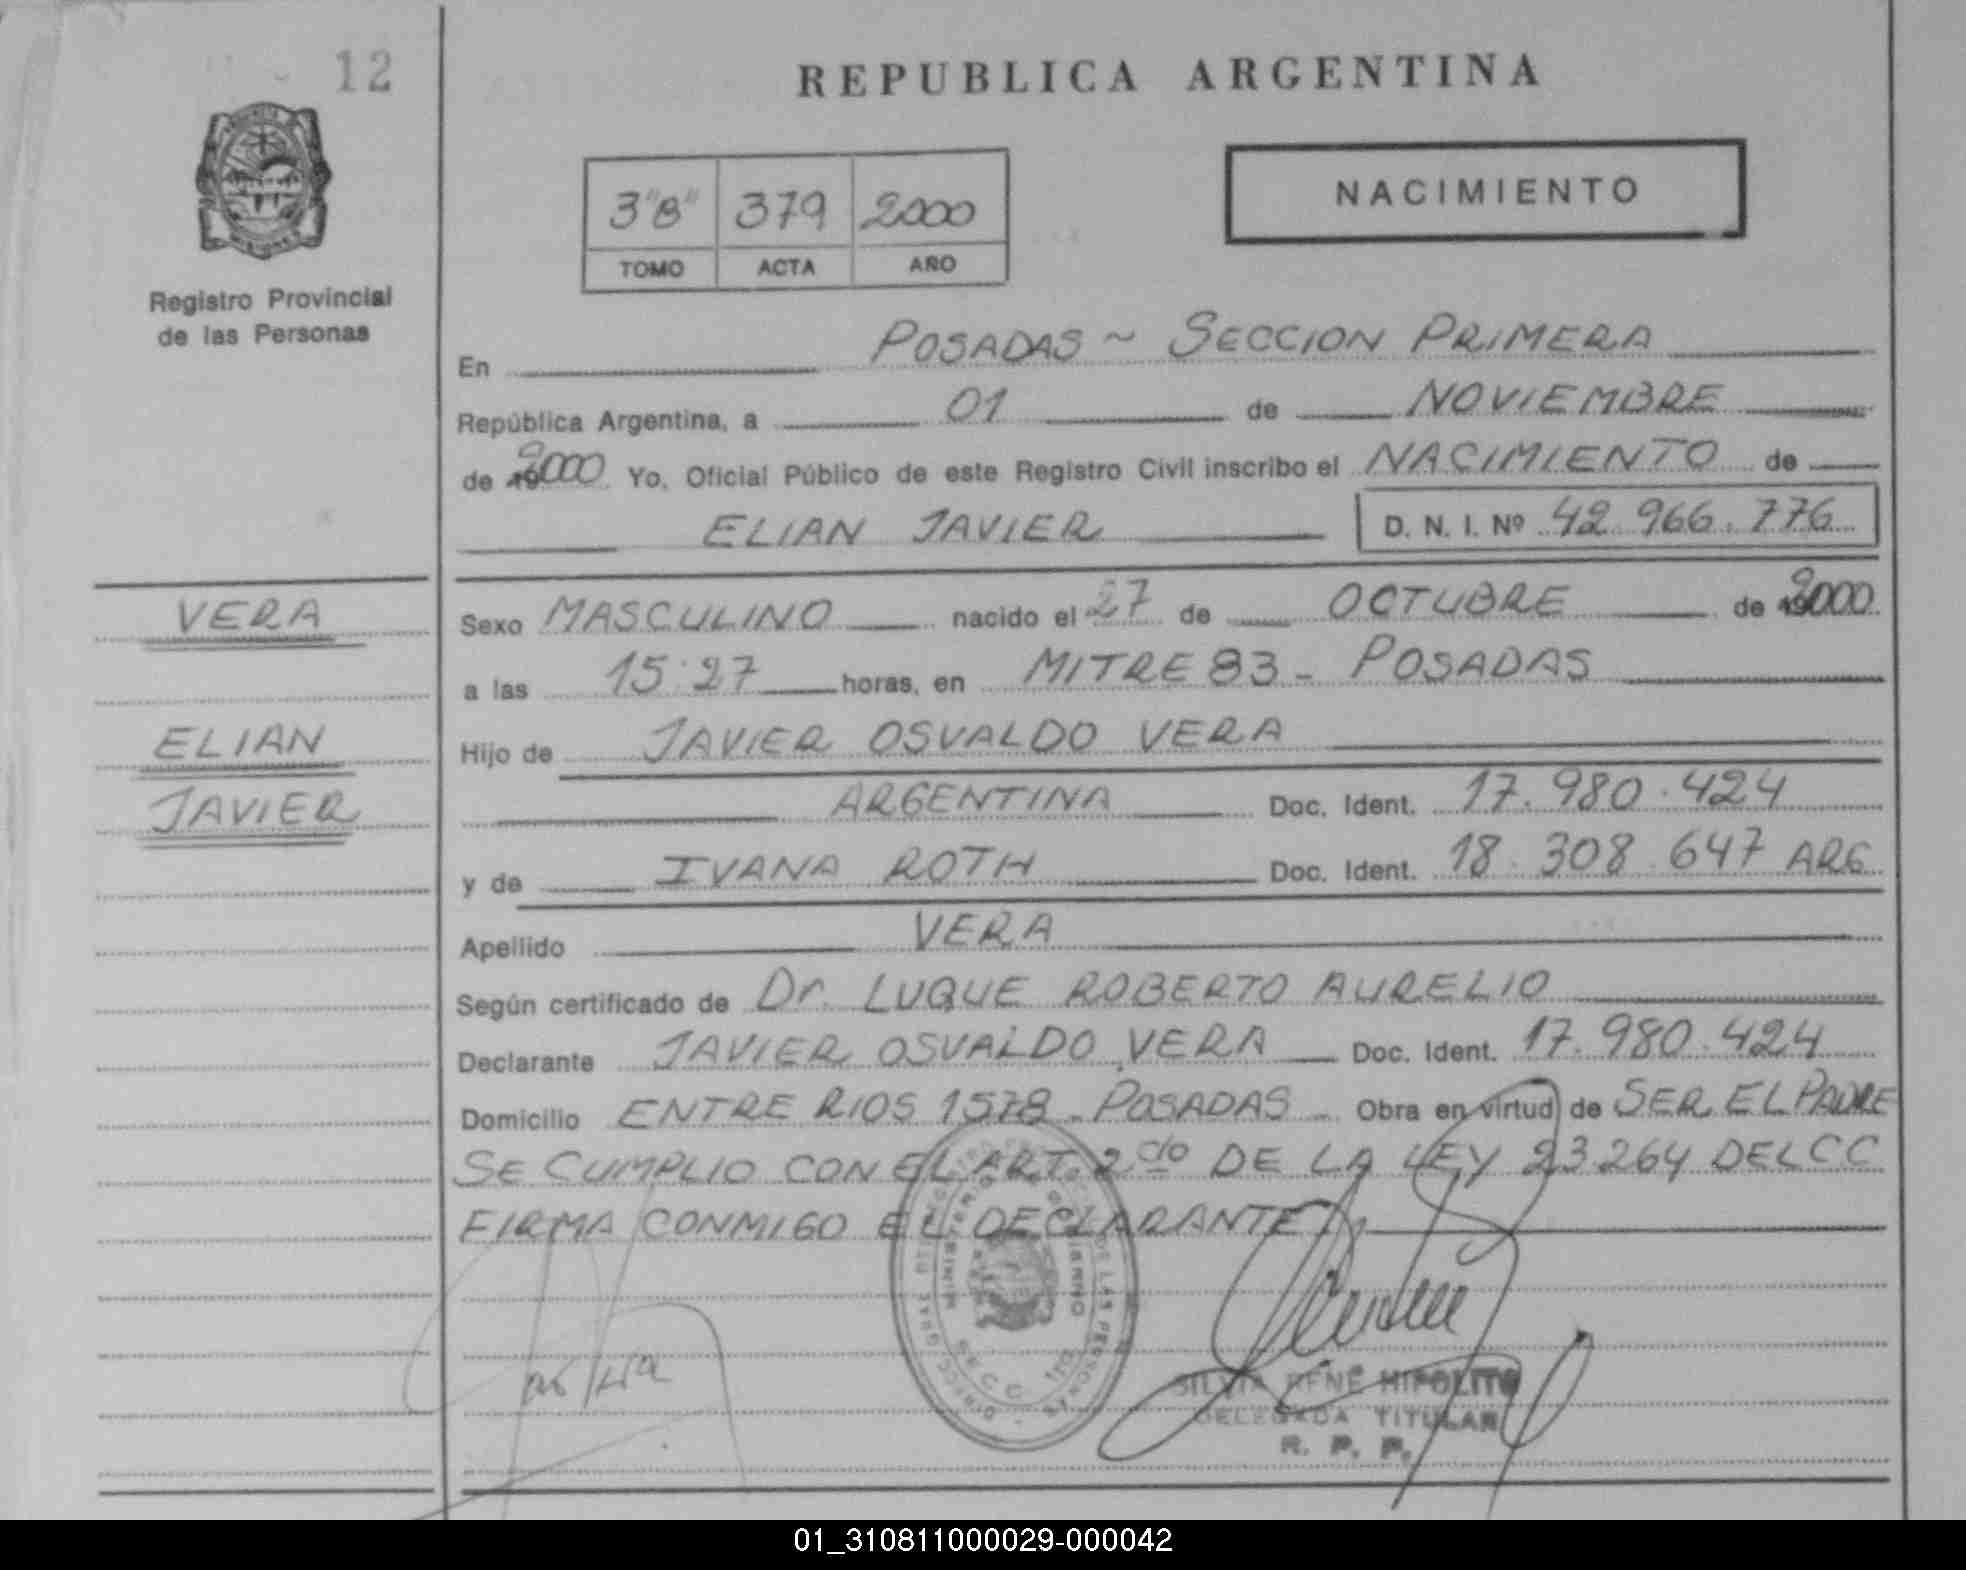 12
REPUBLICA ARGENTINA
3"B" 379 2000
TOMO ACTA AÑO
NACIMIENTO
Registro Provincial
de las Personas
En POSADAS ~ SECCION PRIMERA
República Argentina, a 01 de NOVIEMBRE
de 2000 Yo, Oficial Público de este Registro Civil inscribo el NACIMIENTO de
ELIAN JAVIER D. N. I. Nº 42.966.776
VERA
ELIAN
JAVIER
Sexo MASCULINO nacido el 27 de OCTUBRE de 2000
a las 15:27 horas, en MITRE 83 - POSADAS
Hijo de JAVIER OSVALDO VERA
ARGENTINA Doc. Ident. 17.980.424
y de IVANA ROTH Doc. Ident. 18.308.647 ARG
Apellido VERA
Según certificado de Dr. LUQUE ROBERTO AURELIO
Declarante JAVIER OSVALDO VERA Doc. Ident. 17.980.424
Domicilio ENTRE RIOS 1578 - POSADAS - Obra en virtud de SER EL PADRE
SE CUMPLIO CON EL ART 2 cdo DE LA LEY 23.264 DEL CC
FIRMA CONMIGO EL DECLARANTE
MINISTERIO DE GOBIERNO
SILVIA RENE HIPOLITO
DELEGADA TITULAR
R. P. P.
01_310811000029-000042